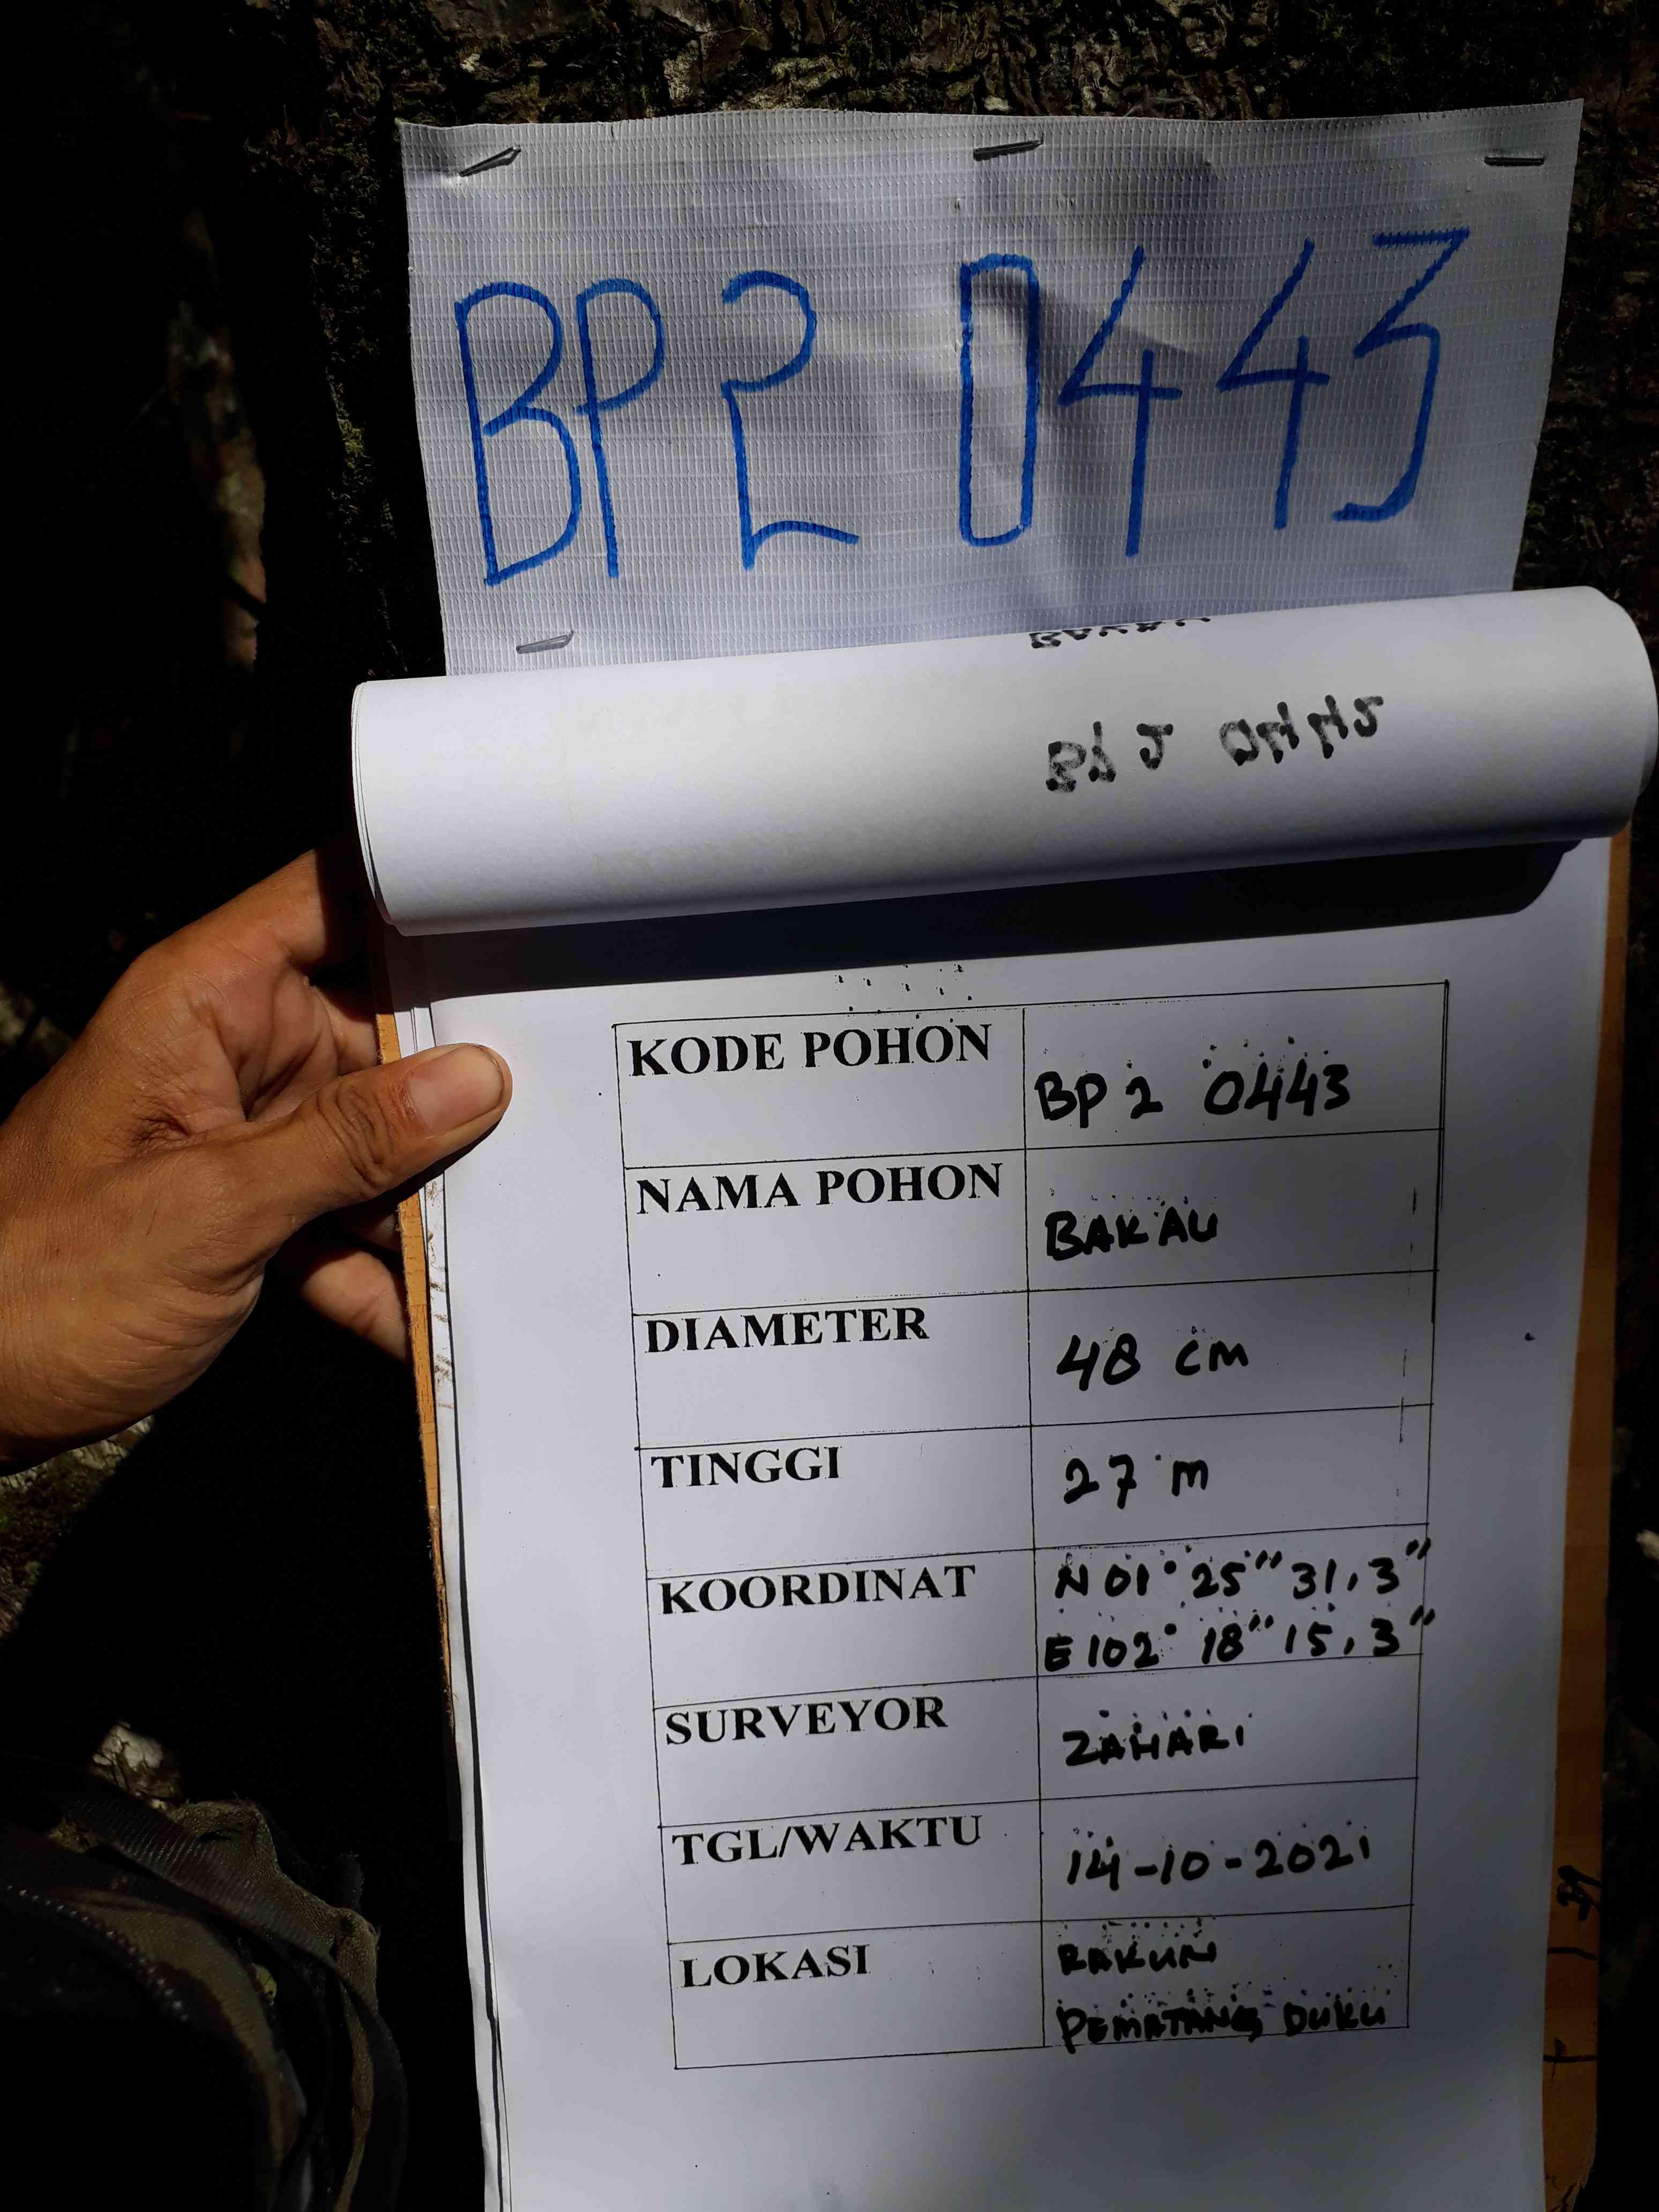 BP2 0443
KODE POHON
BP2 0443
NAMA POHON
BAKAU
DIAMETER
48 cm
TINGGI
27 m
KOORDINAT
N 01° 25" 31,3"
E 102° 18" 15,3"
SURVEYOR
ZAHARI
TGL/WAKTU
14-10-2021
LOKASI
RAKUN
PEMATANG DUKU